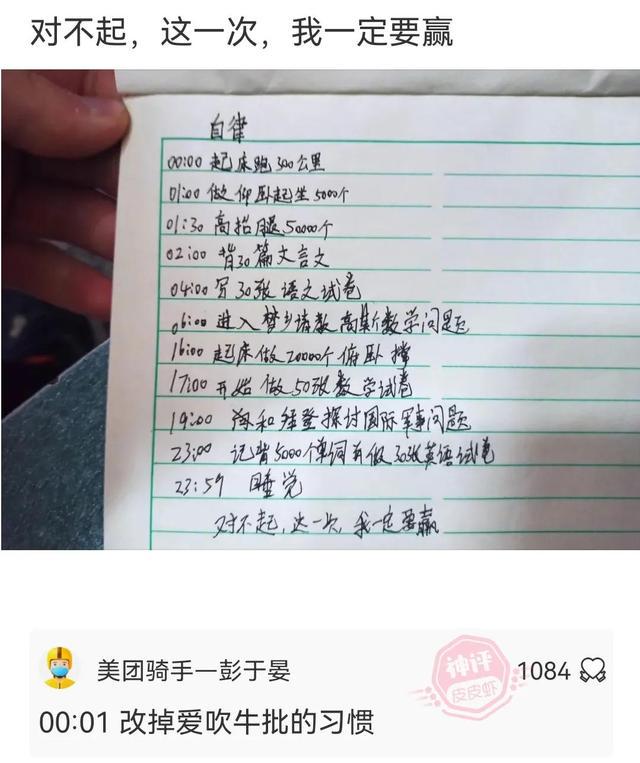 对不起，这一次，我一定要赢
自律
00:00 起床跑300公里
01:00 做仰卧起坐5000个
01:30 高抬腿50000个
02:00 背30篇文言文
04:00 写30张语文试卷
06:00 进入梦乡请教高斯数学问题
16:00 起床做20000个俯卧撑
17:00 开始做50张数学试卷
19:00 和拜登探讨国际军事问题
23:00 记背5000个单词有做30张英语试卷
23:59 睡觉
对不起,这一次,我一定要赢
美团骑手一彭于晏
神评
皮皮虾
1084
00:01 改掉爱吹牛批的习惯